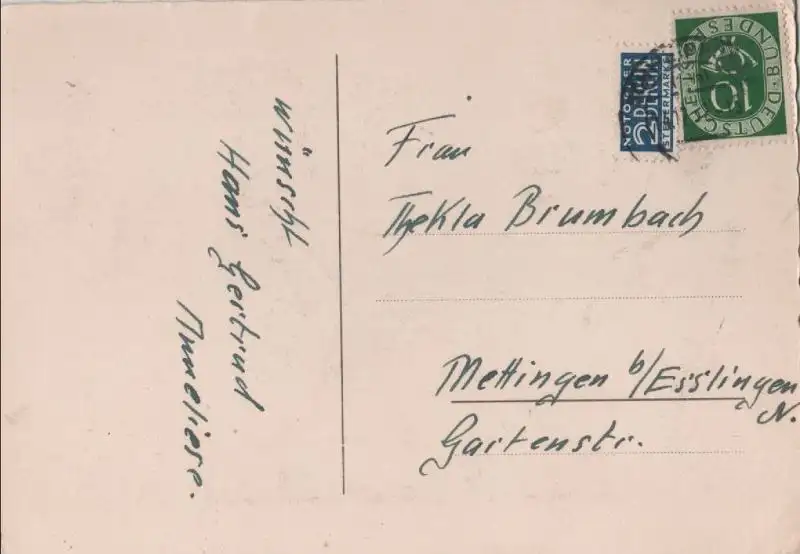 wünscht
Hans Gertrud
Anneliese.
Frau
Thekla Brumbach
Mettingen b/Esslingen
N.
Gartenstr.
NOTOPFER
2 BERLIN
STEUERMARKE
DEUTSCHE BUNDESPOST
10